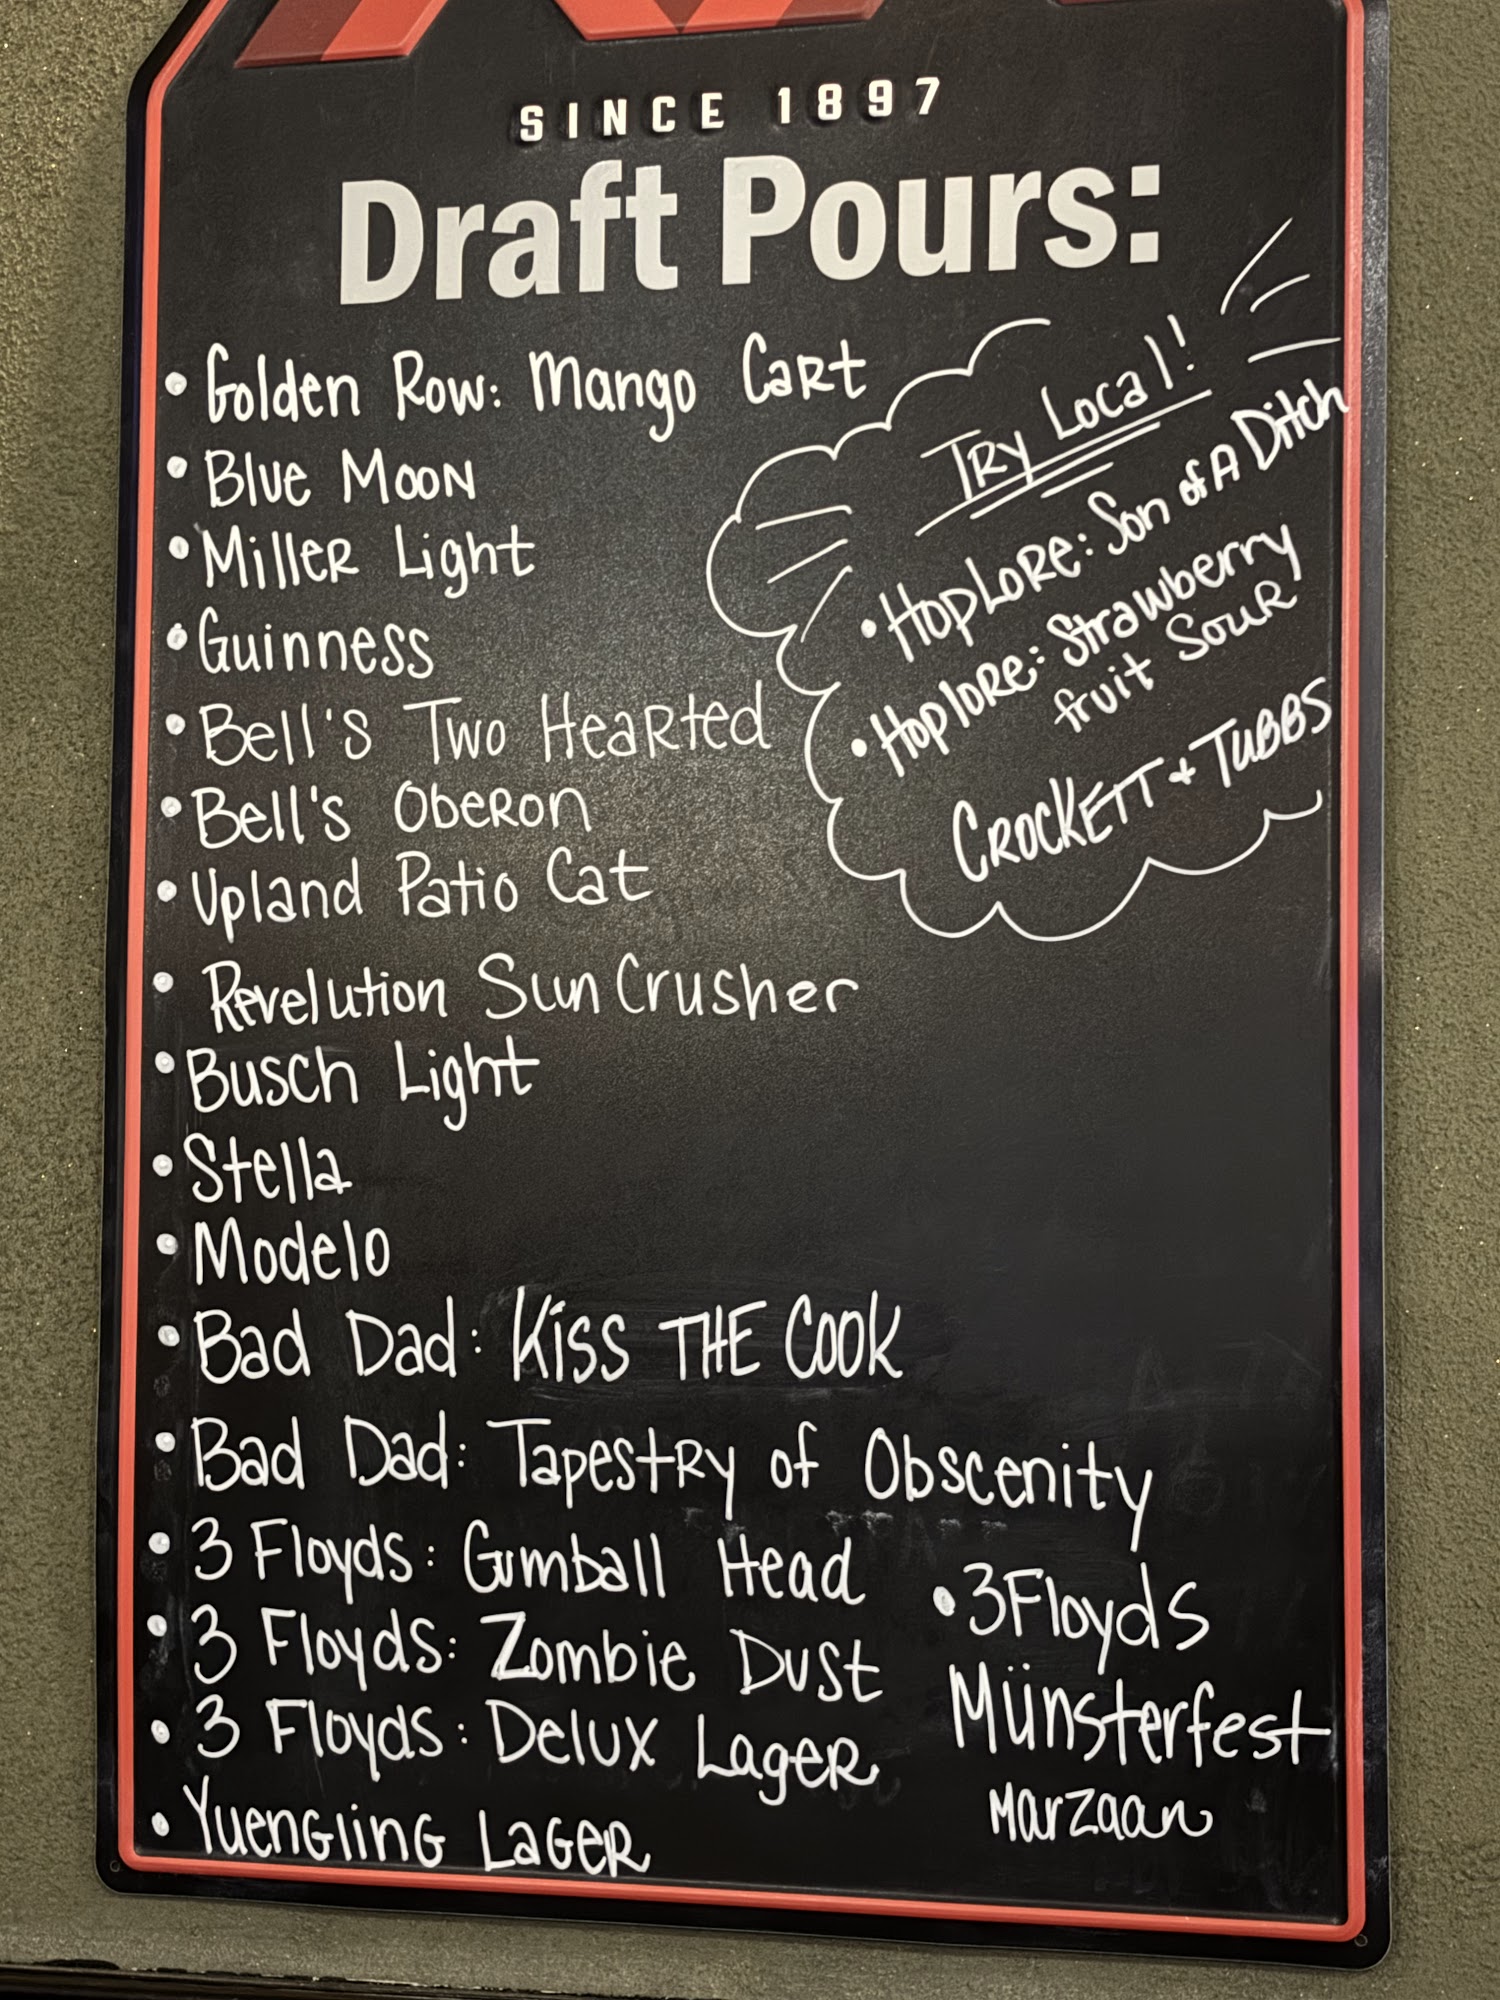 SINCE 1897
Draft Pours:
• Golden Row: Mango Cart
• Blue Moon
• Miller Light
• Guinness
• Bell's Two Hearted
• Bell's Oberon
• Upland Patio Cat
• Revelution Sun Crusher
• Busch Light
• Stella
• Modelo
• Bad Dad: Kiss THE Cook
• Bad Dad: Tapestry of Obscenity
• 3 Floyds: Gumball Head
• 3 Floyds: Zombie Dust
• 3 Floyds: Delux Lager
• Yuengling Lager
Try Local!
• HopLore: Son of A Ditch
• Hoplore: Strawberry
fruit Sour
CROCKETT + TUBBS
• 3Floyds
Münsterfest
Marzaan